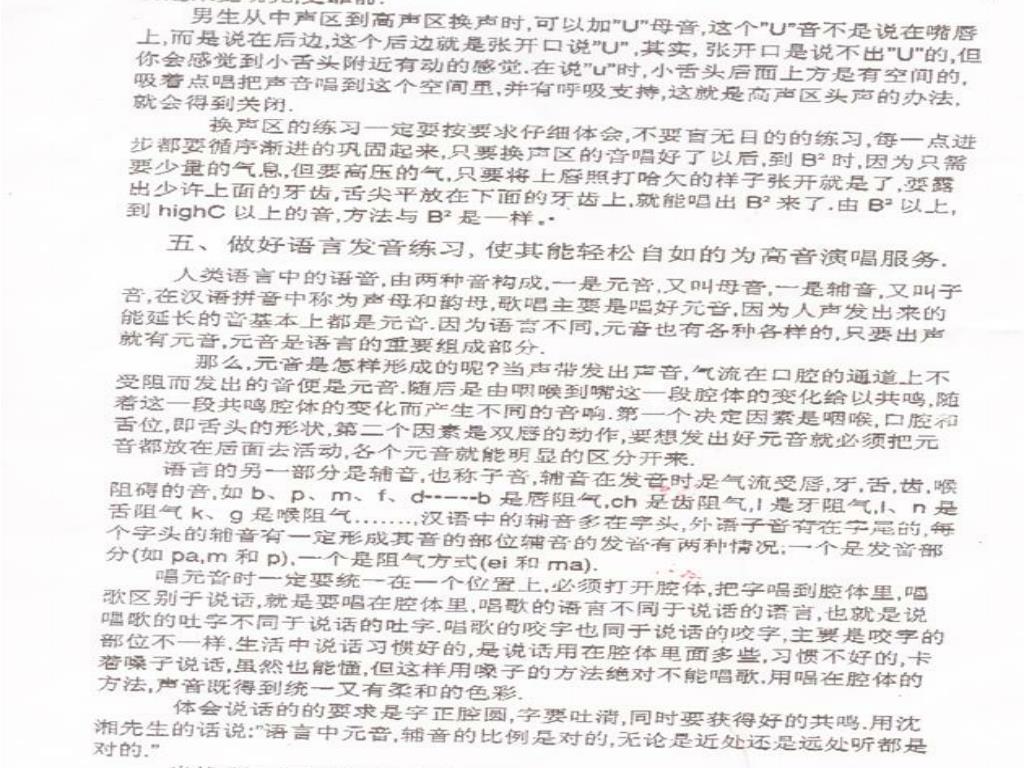 男生从中声区到高声区换声时,可以加"U"母音,这个"U"音不是说在嘴唇
上,而是说在后边,这个后边就是张开口说"U",其实, 张开口是说不出"U"的,但
你会感觉到小舌头附近有动的感觉.在说"u"时,小舌头后面上方是有空间的,
吸着点唱把声音唱到这个空间里,并有呼吸支持,这就是高声区头声的办法,
就会得到关闭.
换声区的练习一定要按要求仔细体会,不要盲无目的的练习,每一点进
步都要循序渐进的巩固起来,只要换声区的音唱好了以后,到 B² 时,因为只需
要少量的气息,但要高压的气,只要将上唇照打哈欠的样子张开就是了,要露
出少许上面的牙齿,舌尖平放在下面的牙齿上,就能唱出 B² 来了.由 B² 以上,
到 highC 以上的音,方法与 B² 是一样。.
五、做好语言发音练习, 使其能轻松自如的为高音演唱服务.
人类语言中的语音,由两种音构成,一是元音,又叫母音,一是辅音,又叫子
音,在汉语拼音中称为声母和韵母,歌唱主要是唱好元音,因为人声发出来的
能延长的音基本上都是元音.因为语言不同,元音也有各种各样的,只要出声
就有元音,元音是语言的重要组成部分.
那么,元音是怎样形成的呢?当声带发出声音,气流在口腔的通道上不
受阻而发出的音便是元音.随后是由咽喉到嘴这一段腔体的变化给以共鸣,随
着这一段共鸣腔体的变化而产生不同的音响.第一个决定因素是咽喉,口腔和
舌位,即舌头的形状,第二个因素是双唇的动作,要想发出好元音就必须把元
音都放在后面去活动,各个元音就能明显的区分开来.
语言的另一部分是辅音,也称子音,辅音在发音时是气流受唇,牙,舌,齿,喉
阻碍的音,如 b、p、m、f、d------b 是唇阻气,ch 是齿阻气,l 是牙阻气,l、n 是
舌阻气 k、g 是喉阻气........,汉语中的辅音多在字头,外语子音有在字尾的,每
个字头的辅音有一定形成其音的部位辅音的发音有两种情况;一个是发音部
分(如 pa,m 和 p),一个是阻气方式(ei 和 ma).
唱元音时一定要统一在一个位置上,必须打开腔体,把字唱到腔体里,唱
歌区别于说话,就是要唱在腔体里,唱歌的语言不同于说话的语言,也就是说
唱歌的吐字不同于说话的吐字.唱歌的咬字也同于说话的咬字,主要是咬字的
部位不一样.生活中说话习惯好的,是说话用在腔体里面多些,习惯不好的,卡
着嗓子说话,虽然也能懂,但这样用嗓子的方法绝对不能唱歌.用唱在腔体的
方法,声音既得到统一又有柔和的色彩.
体会说话的的要求是字正腔圆,字要吐清,同时要获得好的共鸣.用沈
湘先生的话说:"语言中元音,辅音的比例是对的,无论是近处还是远处听都是
对的."